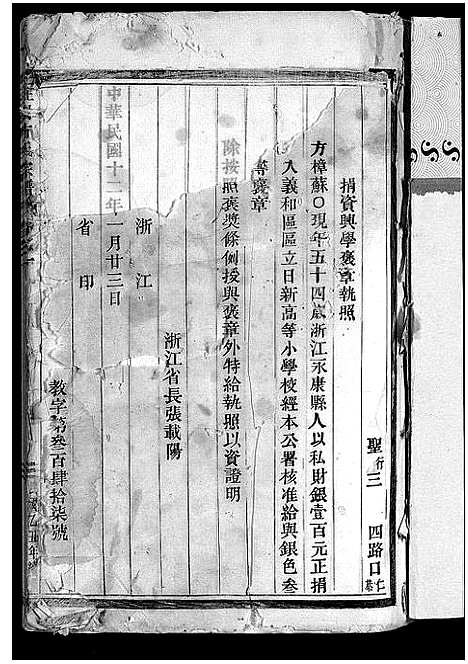 聖行三 四路口仁巷
捐資興學褒章執照
方樟蘇〇現年五十四歲浙江永康縣人以私財銀壹百元正捐
入義和區區立日新高等小學校經本公署核准給與銀色叁
等褒章
除按照褒奬條例授與褒章外特給執照以資證明
浙江省長張載陽
浙江
中華民國十二年一月廿三日
省印
教字第叁百肆拾柒號
乙丑年